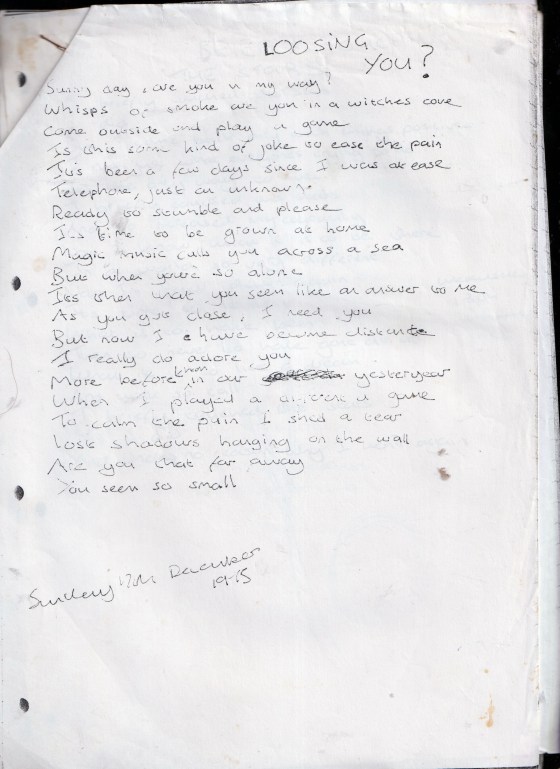 LOOSING
YOU?
Sunny day, are you in my way?
Whisps of smoke are you in a witches cove
Come outside and play a game
Is this some kind of joke to ease the pain
It's been a few days since I was at ease
Telephone, just an unknown
Ready to stumble and please
Its time to be grown at home
Magic music calls you across a sea
But when you're so alone
Its then that you seem like an answer to me
As you get close, I need you
But now I have become distante
I really do adore you
More before known in our yesteryear
When I played a different a game
To calm the pain I shed a tear
Lost shadows hanging on the wall
Are you that far away
You seem so small
Sunday 17th December